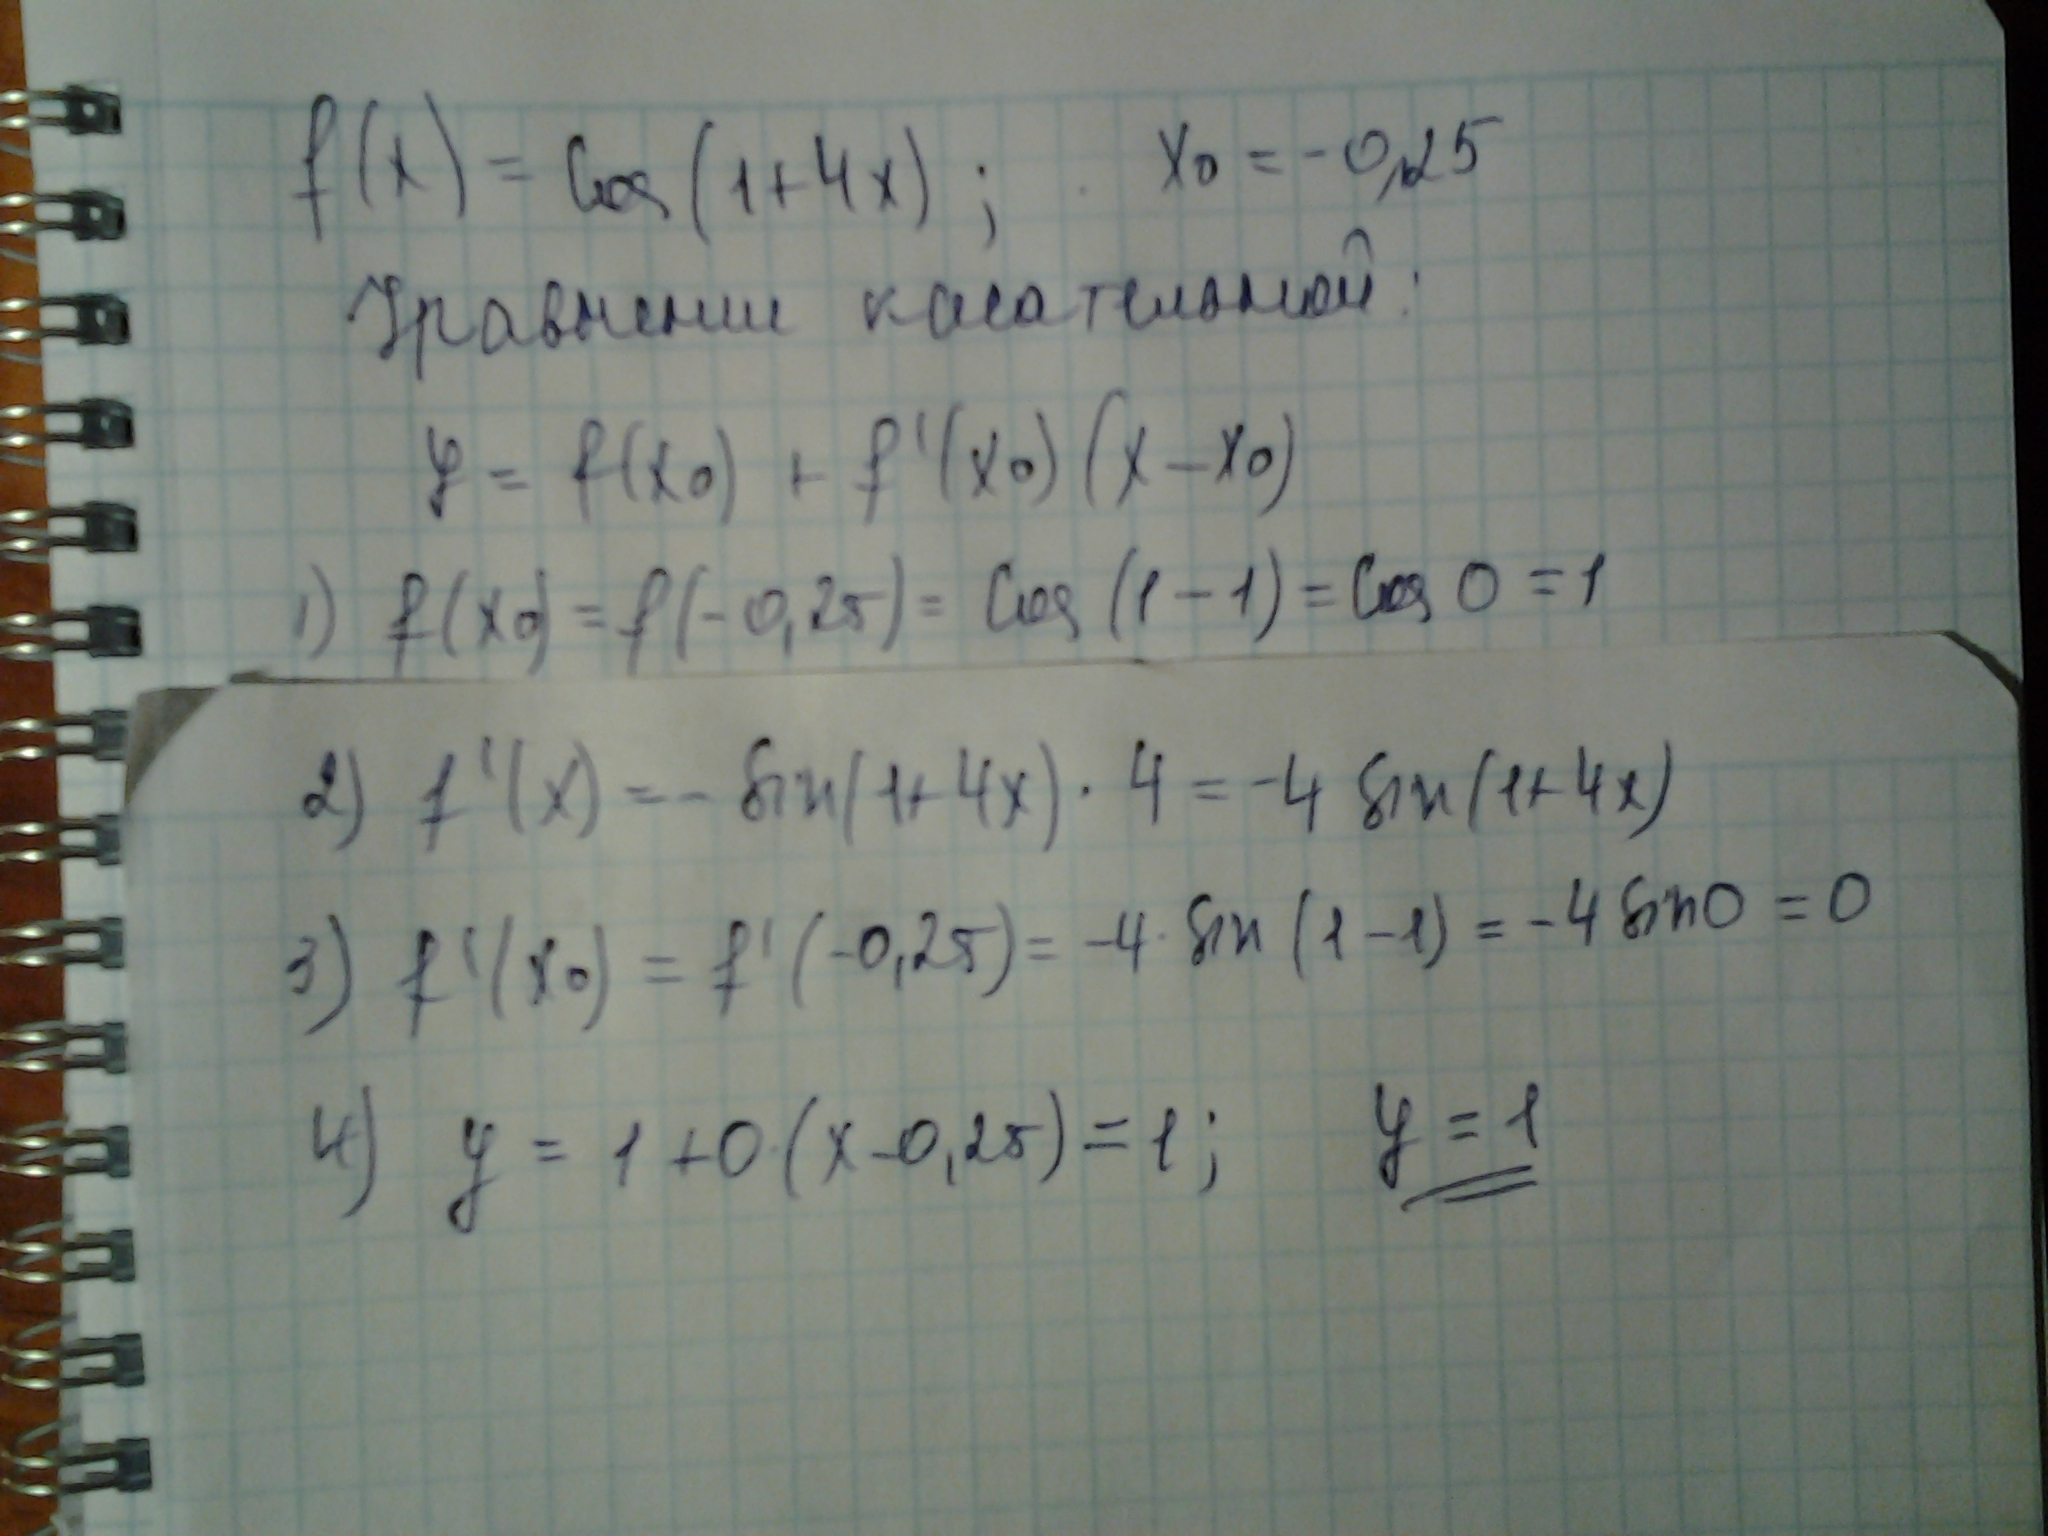 f(x) = Cos(1+4x); x0 = -0,25
Уравнение касательной:
y = f(x0) + f'(x0)(x-x0)
1) f(x0) = f(-0,25) = Cos(1-1) = Cos 0 = 1
2) f'(x) = - Sin(1+4x) · 4 = -4 Sin(1+4x)
3) f'(x0) = f'(-0,25) = -4· Sin(1-1) = -4 Sin0 = 0
4) y = 1+0·(x-0,25) = 1; y = 1